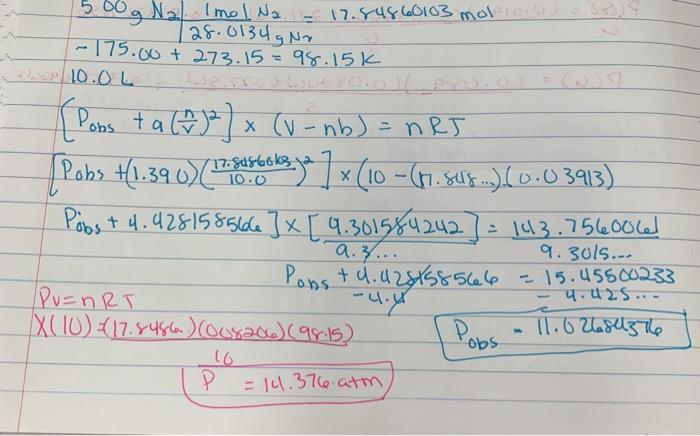 5.00g N2 | 1 mol N2 = 17.84860103 mol
28.0134g N2
-175.00 + 273.15 = 98.15K
10.0 L
[Pobs + a(n/V)²] x (V - nb) = nRT
[Pobs +(1.390)(17.8486103/10.0)²] x (10 - (17.848...)(0.03913)
Pobs + 4.428158566] x [9.301584242] = 143.7560061
9.3... 9.3015...
Pobs + 4.428158566 = 15.45500233
-4.4 - 4.425...
PV=nRT
X(10) =(17.8486.)(0.08206)(98.15)
Pobs = 11.02684376
10
P = 14.376 atm